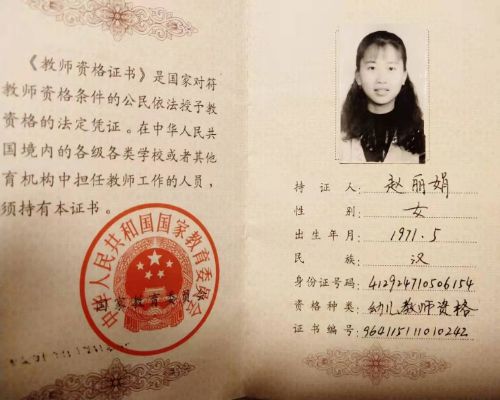 《教师资格证书》是国家对符
教师资格条件的公民依法授予教
资格的法定凭证。在中华人民共
国境内的各级各类学校或者其他
育机构中担任教师工作的人员，
须持有本证书。
中华人民共和国国家教育委员会
国家教育委员会
持证人：赵丽娟
性别：女
出生年月：1971.5
民族：汉
身份证号码：412924710506154
资格种类：幼儿教师资格
证书编号：964115111010242